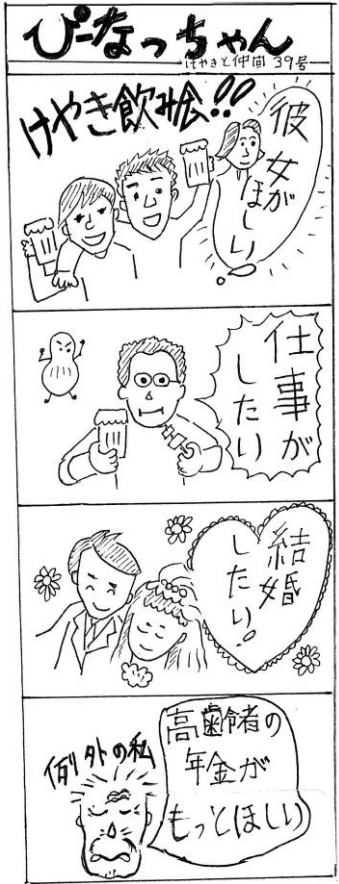 ぴーなっちゃん
けやきと仲間 39号
けやき飲み会!!
彼女が
ほしい
仕事が
したい
結婚
したい!
例外の私
高齢者の
年金が
もっとほしい